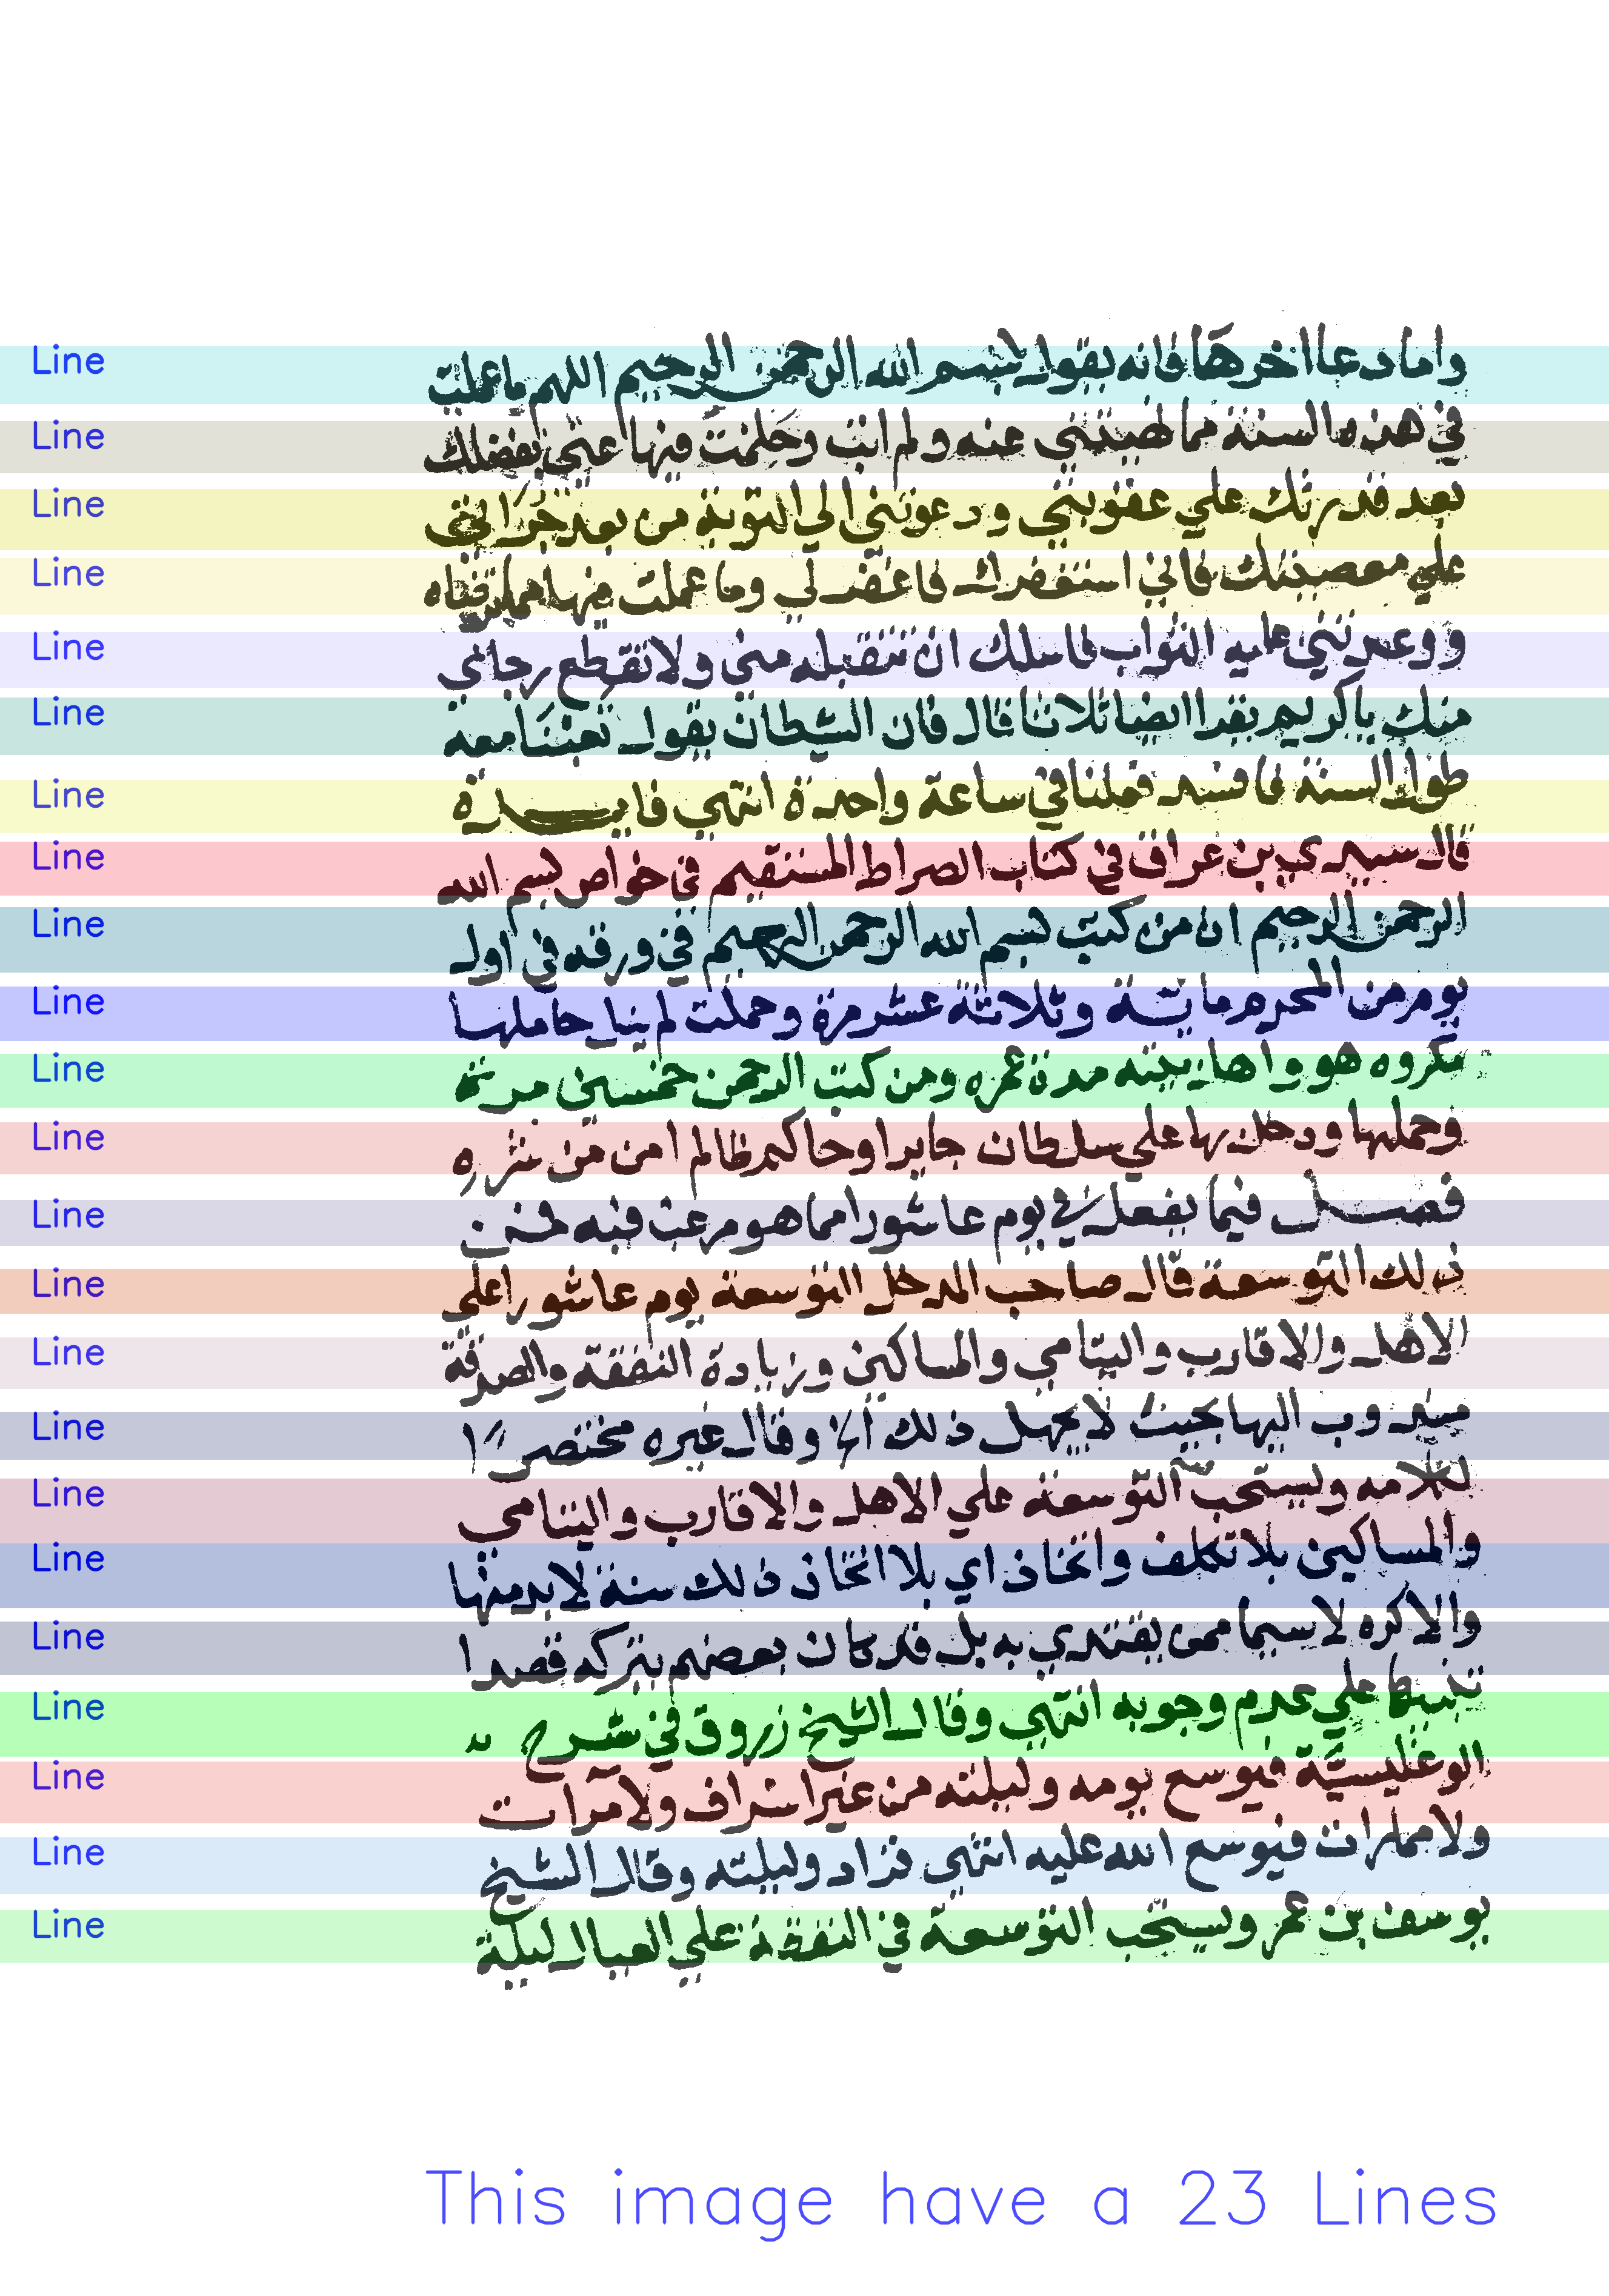 Line واما دعا اخرها فانه يقول بسم الله الرحمن الرحيم اللهم ما عملت
Line في هذه السنة مما نهيتني عنه ولم اتب وحلمت فيها عني بفضلك
Line بعد قدرتك علي عقوبتي ودعوتني الي التوبة من بعد جراتي
Line علي معصيتك فاني استغفرك فاغفر لي وما عملت فيها مما ترضاه
Line ووعدتني عليه الثواب فاسلك ان تتقبله مني ولا تقطع رجاني
Line منك ياكريم يقرا ايضا ثلاثا قال فان الشيطان يقول تعبنا معه
Line طول السنة فافسد فعلنا في ساعة واحدة انتهي فايدة
Line قال سيدي بن عراق في كتاب الصراط المستقيم في خواص بسم الله
Line الرحمن الرحيم ان من كتب بسم الله الرحمن الرحيم في ورقه في اول
Line يوم من المحرم ماية وثلاثة عشر مرة وحملت لم ينل حاملها
Line مكروه هو واهل بيته مدة عمره ومن كتب الرحمن خمسين مرة
Line وحملها ودخل بها علي سلطان جاير او حاكم ظالم امن من شره
Line فصل فيما يفعل في يوم عاشورا مما هو مرغب فيه فمن
Line ذلك التوسعة قال صاحب المدخل التوسعة يوم عاشورا علي
Line الاهل والاقارب واليتامي والمساكين وزيادة النفقة والصدقة
Line مندوب اليها بحيث لا يجهل ذلك وقال غيره مختصرا
Line لكلامه ويستحب التوسعة علي الاهل والاقارب واليتامي
Line والمساكين بلا تكلف واتخاذ اي بلا اتخاذ ذلك سنة لابد منها
Line والا كره لا سيما ممن يقتدي به بل قد كان بعضهم يتركه قصدا
Line تنبيها علي عدم وجوبه انتهي وقال الشيخ زروق في شرح
Line الوغليسيَّة فيوسع يومه وليلته من غير اسراف ولا مرات
Line ولا ممارات فيوسع الله عليه انتهي فزاد وليلته وقال الشيخ
Line يوسف بن عمر ويستحب التوسعة في النفقة علي العيال ليلة
This image have a 23 Lines